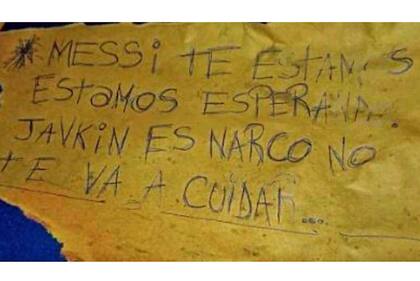 *MESSI TE ESTAMOS
ESTAMOS ESPERANDO.
JAVKIN ES NARCO NO
TE VA A CUIDAR...